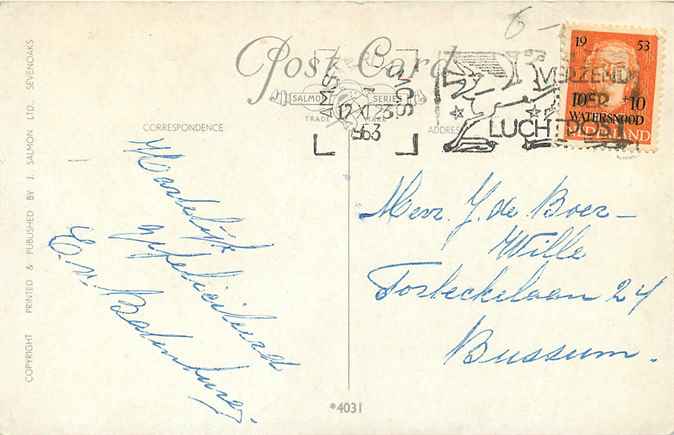 6-
Post Card
SALMON SERIES
TRADE MARK
CORRESPONDENCE
ADDRESS
AMS
12.XI.23
1953
VERZEND
PER
LUCHTPOST
19 53
10 +10
WATERSNOOD
NEDERLAND
Hartelijk
gefeliciteerd
E. v. Batenburg.
Mevr. J. de Boer-
Wille
Torbeckelaan 24
Bussum.
COPYRIGHT PRINTED & PUBLISHED BY J. SALMON LTD., SEVENOAKS
*4031